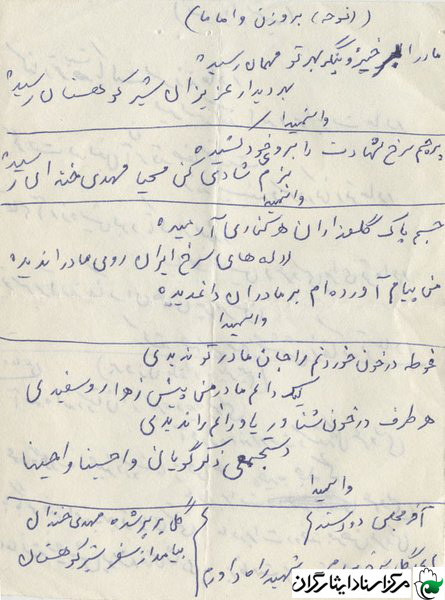 (نوحه) بر وزن واماما)
مادرا برخیز و بنگر بهر تو مهمان رسیده
بهر دیدار عزیزان شیر کوهستان رسیده
واشهیدا
پرچم سرخ شهادت را بروی خود کشیده
بزم شادی کن محیا مهدی خندان رسیده
واشهیدا
جسم پاک گلعذاران هر کناری آرمیده
لاله های سرخ ایران روی مادر اندیده
من پیام آورده ام بر مادران داغدیده
واشهیدا
غوطه در خون خوردنم را جان مادر تو ندیدی
لیک دانم مادر من پیش زهرا رو سفیدی
هر طرف در خون شناور یاورانم را ندیدی
دستجمعی ذکر گویان واحسینا واحسینا
واشهیدا
گل پرپر شده مهدی خندان
پیامد از سفر شیر کوهستان
شهید راه داورم
مرکز اسناد ایثارگران